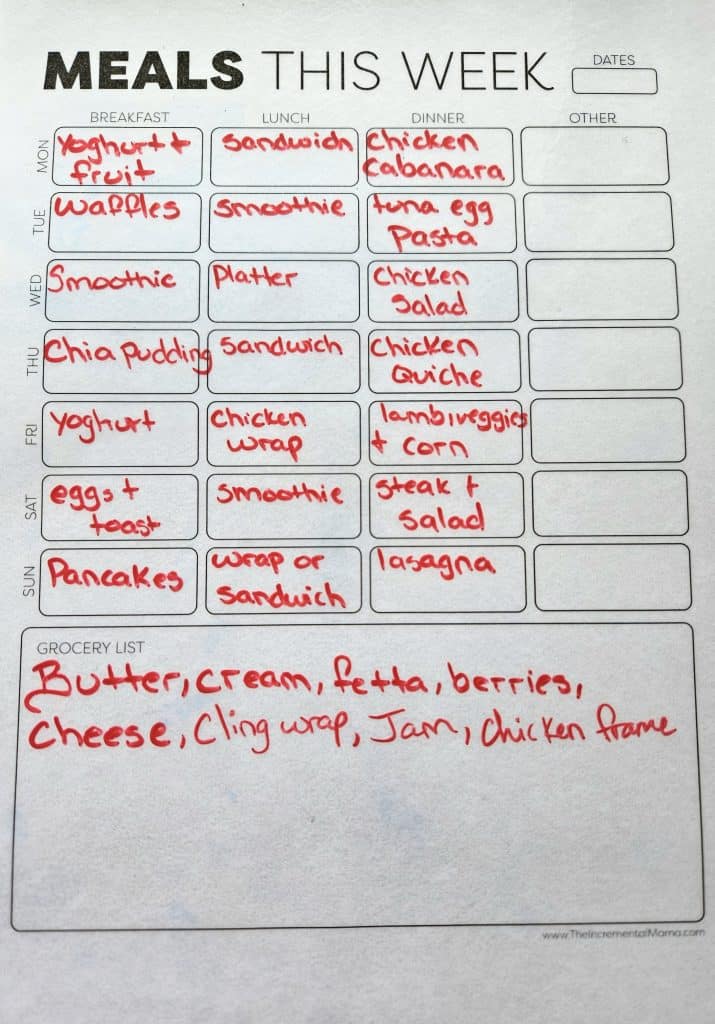 MEALS THIS WEEK
DATES
BREAKFAST LUNCH DINNER OTHER
MON
Yoghurt +
fruit
Sandwich
Chicken
Cabanara
TUE
Waffles
Smoothie
tuna egg
Pasta
WED
Smoothie
Platter
Chicken
Salad
THU
Chia Pudding
Sandwich
Chicken
Quiche
FRI
Yoghurt
Chicken
wrap
lamb, veggies
+ corn
SAT
eggs +
toast
Smoothie
Steak +
Salad
SUN
Pancakes
wrap or
sandwich
lasagna
GROCERY LIST
Butter, cream, fetta, berries,
Cheese, Cling wrap, Jam, Chicken frame
www.TheIncrementalMama.com